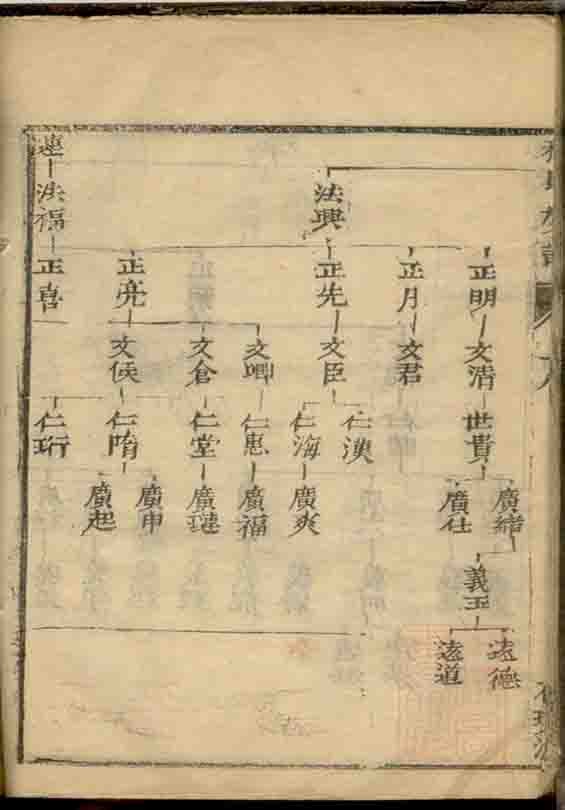 連
法福
法興
正明
正月
正先
正亮
正喜
文清
文君
文臣
文卿
文倉
文侯
世貴
仁漢
仁海
仁惠
仁堂
仁隋
仁珩
廣緒
廣仕
廣爽
廣福
廣璉
廣申
廣起
義玉
遠德
遠道